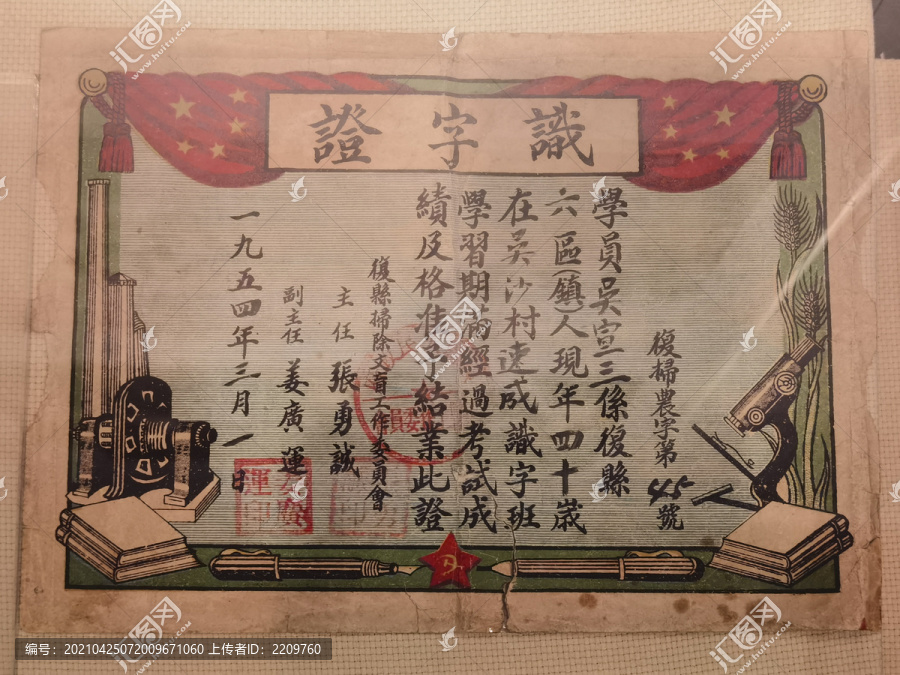 識字證
復掃農字第445號
學員吳宣三係復縣
六區(鎮)人現年四十歲
在吳沙村速成識字班
學習期滿經過考試成
績及格准予結業此證
復縣掃除文盲工作委員會
主任 張勇誠
副主任 姜廣運
一九五四年三月一日
编号：20210425072009671060 上传者ID：2209760
汇图网
www.huitu.com